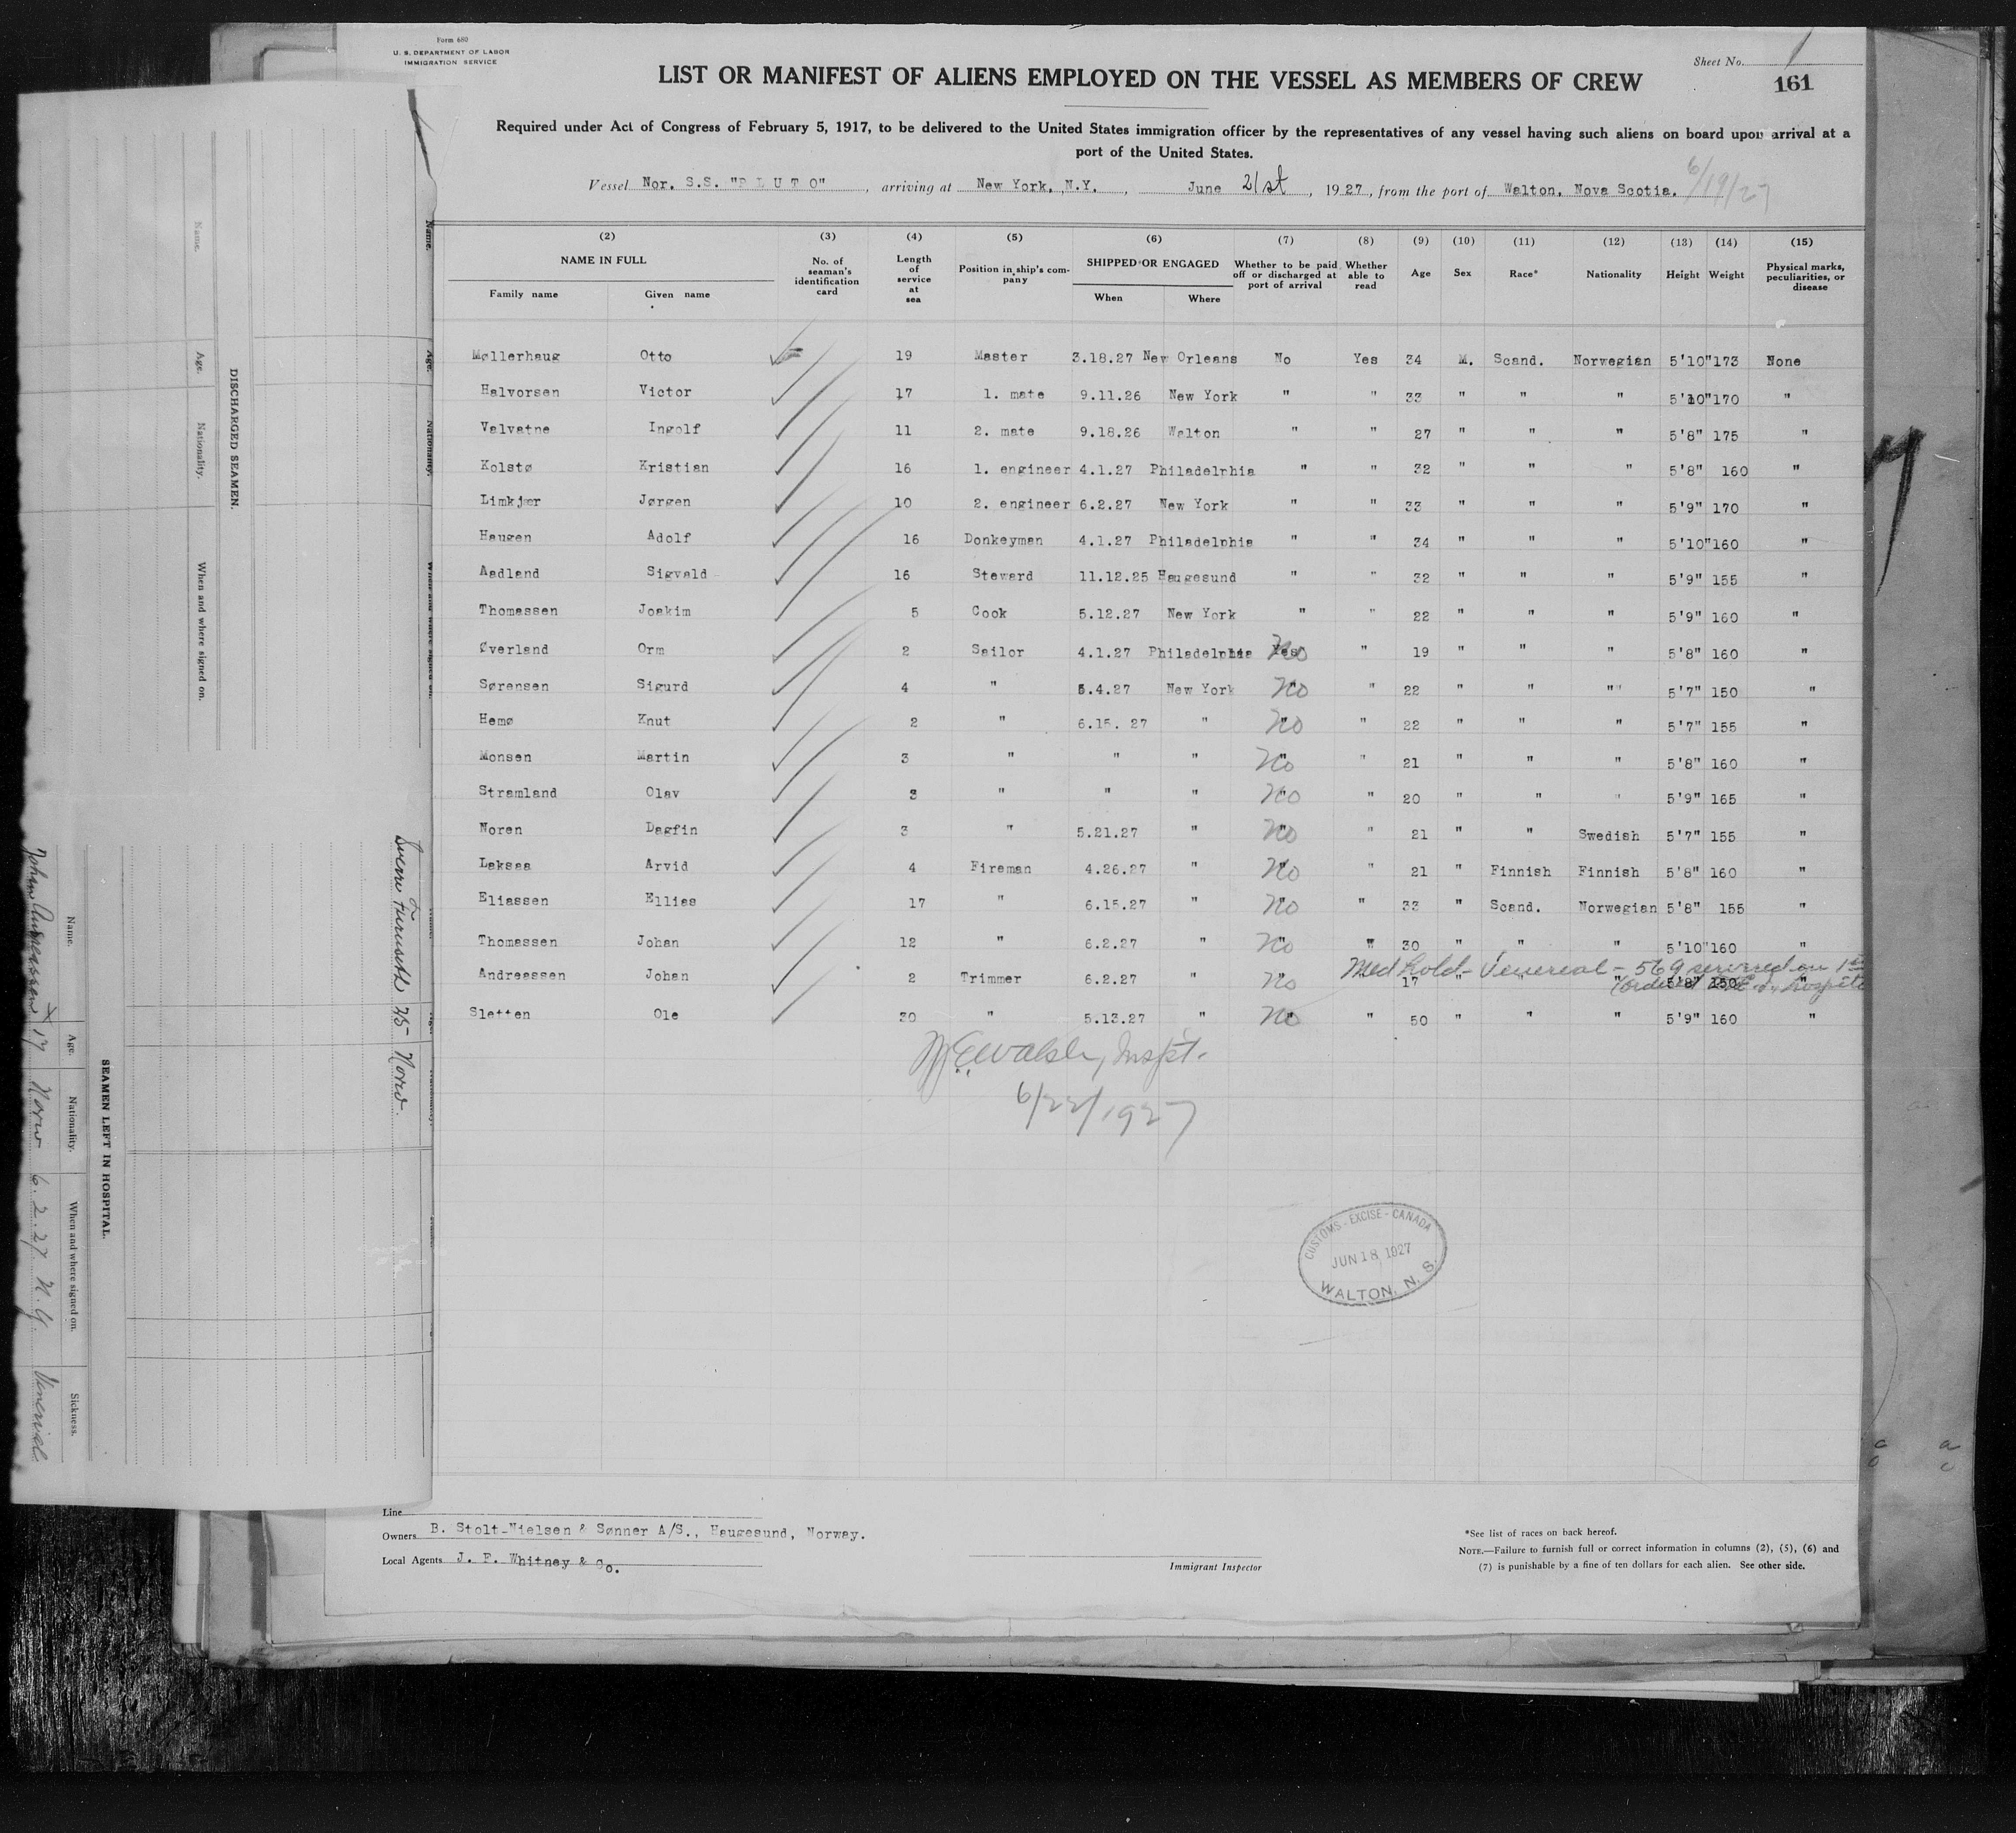 Form 680
U. S. DEPARTMENT OF LABOR
IMMIGRATION SERVICE
Sheet No. 1
161
LIST OR MANIFEST OF ALIENS EMPLOYED ON THE VESSEL AS MEMBERS OF CREW
Required under Act of Congress of February 5, 1917, to be delivered to the United States immigration officer by the representatives of any vessel having such aliens on board upon arrival at a
port of the United States.
Vessel Nor. S.S. "P L U T O", arriving at New York, N.Y., June 21st, 1927, from the port of Walton, Nova Scotia. 6/19/27
(2) (3) (4) (5) (6) (7) (8) (9) (10) (11) (12) (13) (14) (15)
NAME IN FULL
Family name Given name
No. of seaman's identification card
Length of service at sea
Position in ship's company
SHIPPED OR ENGAGED
When Where
Whether to be paid off or discharged at port of arrival
Whether able to read
Age Sex Race* Nationality Height Weight
Physical marks, peculiarities, or disease
Møllerhaug Otto 19 Master 3.18.27 New Orleans No Yes 34 M. Scand. Norwegian 5'10" 173 None
Halvorsen Victor 17 1. mate 9.11.26 New York " " 33 " " " 5'10" 170 "
Valvatne Ingolf 11 2. mate 9.18.26 Walton " " 27 " " " 5'8" 175 "
Kolstø Kristian 16 1. engineer 4.1.27 Philadelphia " " 32 " " " 5'8" 160 "
Limkjær Jørgen 10 2. engineer 6.2.27 New York " " 33 " " " 5'9" 170 "
Haugen Adolf 16 Donkeyman 4.1.27 Philadelphia " " 34 " " " 5'10" 160 "
Aadland Sigvald 16 Steward 11.12.25 Haugesund " " 32 " " " 5'9" 155 "
Thomassen Joakim 5 Cook 5.12.27 New York " " 22 " " " 5'9" 160 "
Øverland Orm 2 Sailor 4.1.27 Philadelphia Yes No " 19 " " " 5'8" 160 "
Sørensen Sigurd 4 " 5.4.27 New York " No " 22 " " " 5'7" 150 "
Hemø Knut 2 " 6.15. 27 " " No " 22 " " " 5'7" 155 "
Monsen Martin 3 " " " " No " 21 " " " 5'8" 160 "
Stramland Olav 3 " " " " No " 20 " " " 5'9" 165 "
Noren Dagfin 3 " 5.21.27 " " No " 21 " " Swedish 5'7" 155 "
Laksaa Arvid 4 Fireman 4.26.27 " " No " 21 " Finnish Finnish 5'8" 160 "
Eliassen Ellias 17 " 6.15.27 " " No " 33 " Scand. Norwegian 5'8" 155 "
Thomassen Johan 12 " 6.2.27 " " No " 30 " " " 5'10" 160 "
Med hold - Venereal - 569 served on 1st
Andreassen Johan 2 Trimmer 6.2.27 " " No 17 " " " 5'8" 150 "
Sletten Ole 30 " 5.13.27 " " No " 50 " " " 5'9" 160 "
Walsh, Inspt.
6/22/1927
CUSTOMS - EXCISE - CANADA
JUN 18 1927
WALTON, N. S.
Line
Owners B. Stolt-Nielsen & Sønner A/S., Haugesund, Norway.
Local Agents J. F. Whitney & Co.
Immigrant Inspector
*See list of races on back hereof.
NOTE.—Failure to furnish full or correct information in columns (2), (5), (6) and
(7) is punishable by a fine of ten dollars for each alien. See other side.
DISCHARGED SEAMEN.
Name. Age. Nationality. When and where signed on.
Furuseth 25 Norw.
SEAMEN LEFT IN HOSPITAL.
Name. Age. Nationality. When and where signed on. Sickness.
Johan Andreassen 17 Norw 6.2.27 N.Y. Venereal